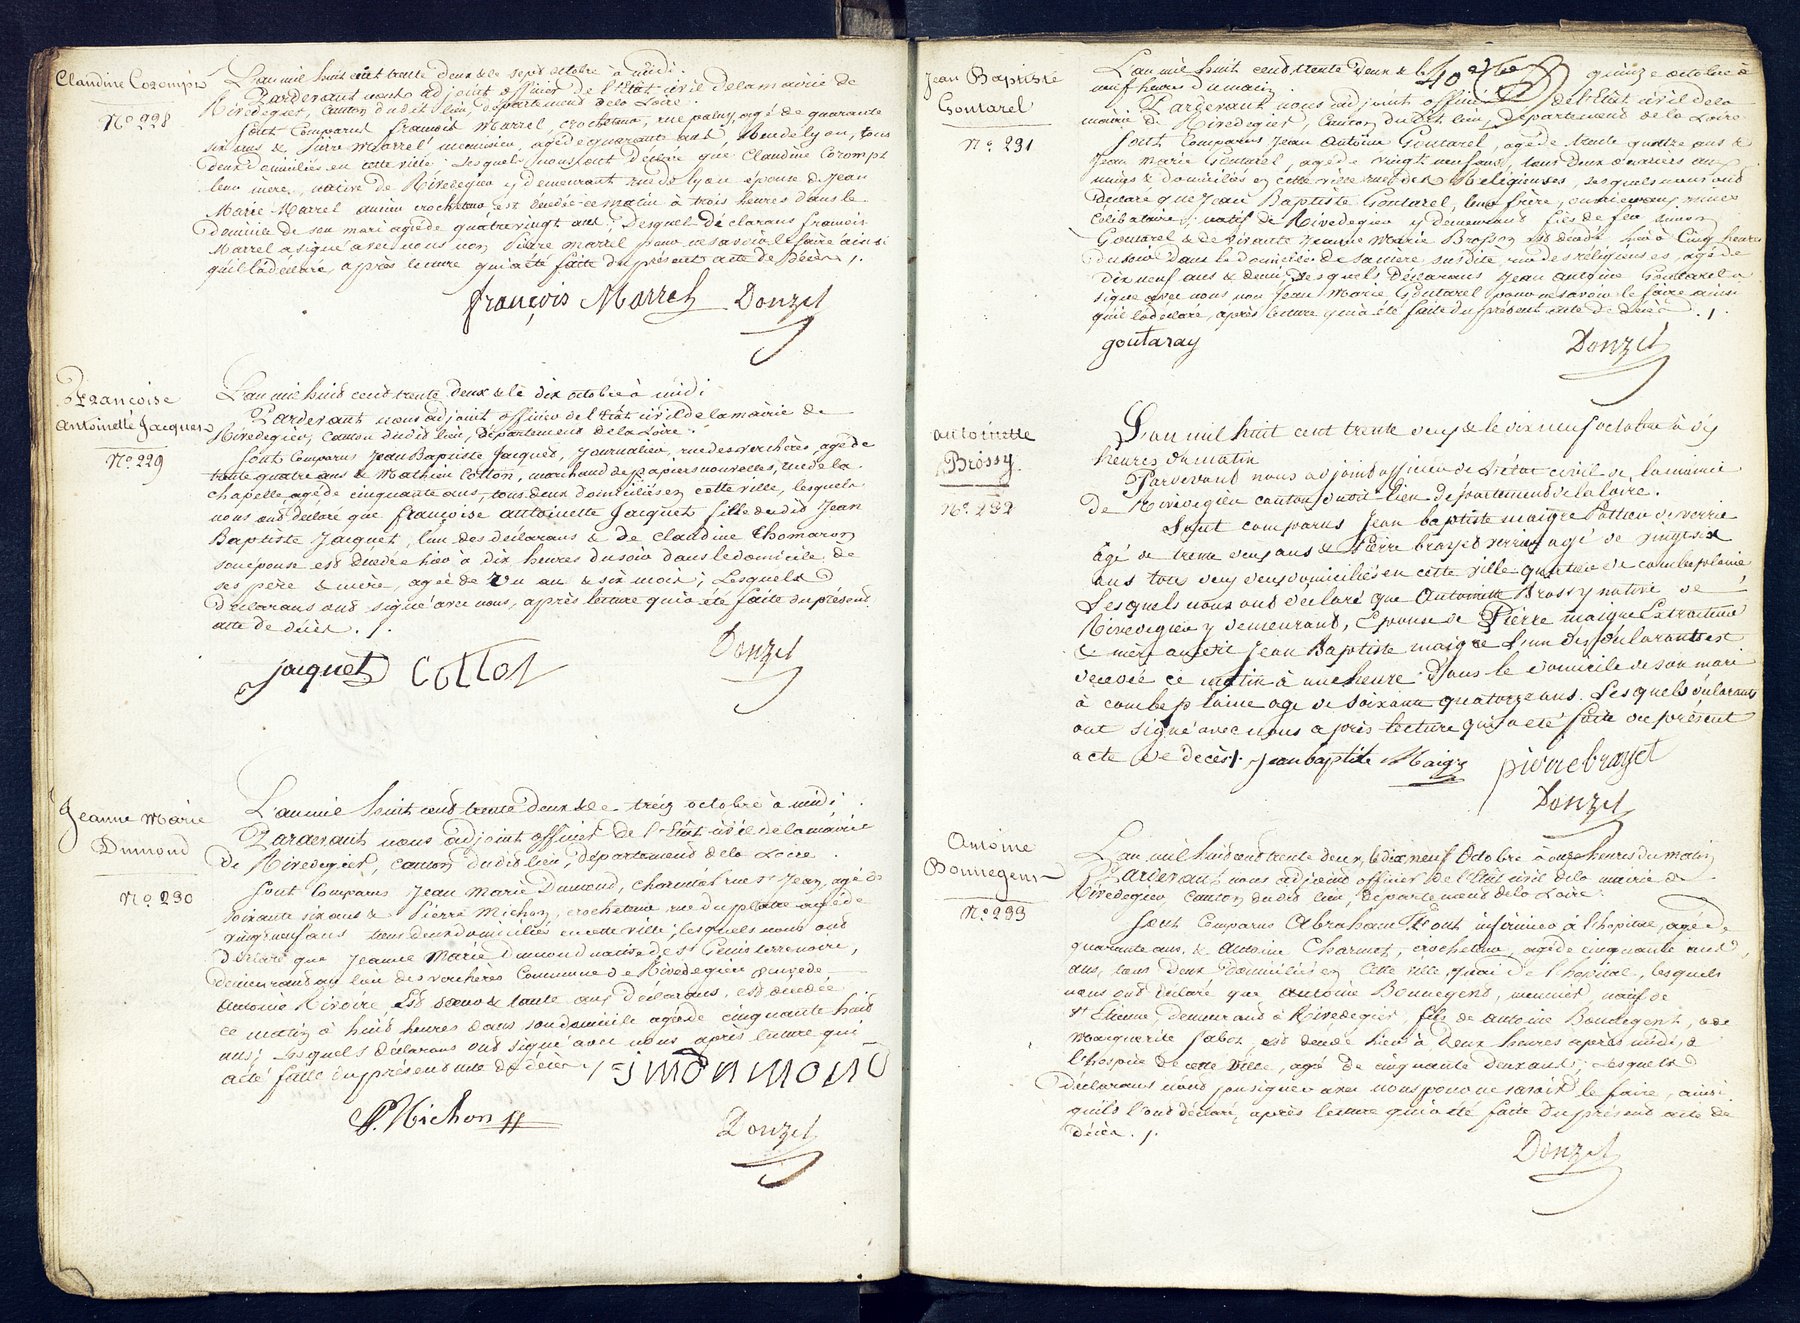 Claudine Corompt
N° 228
L'an mil huit cent trente deux & le sept octobre à midi.
Pardevant nous adjoint officier de l'Etat civil de la mairie de
Rivedegier, Canton dudit lieu, département de la Loire.
Sont Comparus françois Marrel, crocheteur, rue paluy, agé de quarante
six ans & Pierre Marrel menuisier, agé de quarante ans, Rue de lyon, tous
deux domiciliés en cette ville; lesquels nous ont déclaré que Claudine Corompt
leur mère, native de Rivedegier y demeurant rue de lyon épouse de Jean
Marie Marrel ancien crocheteur est décédée ce matin à trois heures dans le
domicile de son mari agée de quatrevingt ans; Desquels Déclarans françois
Marrel a signé avec nous non Pierre Marrel pour ne savoir le faire ainsi
qu'il l'a déclaré, après lecture qui a été faite du présent acte de Décès ./.
françois Marrel Donzel
Françoise
Antoinette Jacquet
N° 229
L'an mil huit cent trente deux & le dix octobre à midi
Pardevant nous adjoint officier de l'Etat civil de la mairie de
Rivedegier, Canton dudit lieu, Département de la Loire.
Sont Comparus Jean Baptiste Jacquet, Journalier, rue des verchères, agé de
trente quatre ans & Mathieu Cotton, marchand de papiers nouvelles, rue de la
chapelle agé de cinquante ans, tous deux domiciliés en cette ville, lesquels
nous ont declaré que françoise antoinette Jacquet fille dudit Jean
Baptiste Jacquet, l'un des déclarans & de Claudine Thomaron
son epouse est décédée hier à dix heures du soir dans le domicile de
ses père & mère, agée de Un an & six mois; Lesquels
déclarans ont signé avec nous, après lecture qui a été faite du présent
acte de décès ./.
jacquet Cottot Donzel
Jeanne Marie
Dumond
N° 230
L'an mil huit cent trente deux & le treiz octobre à midi.
Pardevant nous adjoint officier de l'Etat civil de la mairie
De Rivedegier, Canton dudit lieu, département de la Loire.
Sont Comparus Jean Marie Dumond, rue St Jean, agé de
soixante six ans & Pierre Michon, crocheteur rue du platre agé de
vingt neuf ans tous deux domiciliés en cette ville; lesquels nous ont
Déclaré que Jeanne Marie Dumond native de St Genis terrenoire,
demeurant au lieu des verchères Commune de Rivedegier
Antoine Rivoire Est sœur & tante aux Déclarans, est décédée
ce matin à huit heures dans son domicile agée de cinquante huit
ans; Lesquels déclarans ont signé avec nous après lecture qui
a été faite du présent acte de décès ./. jmdumond
P. Michon Donzel
Jean Baptiste
Goutarel
N° 231
L'an mil huit cent trente Deux & le quinze octobre à
neuf heures du matin.
Pardevant nous adjoint officier de l'Etat civil de la
mairie de Rivedegier, Canton dudit lieu, Département de la Loire
Sont Comparus Jean Antoine Goutarel, agé de trente quatre ans &
Jean Marie Goutarel, agé de vingt neuf ans, tous deux ouvriers aux
mines & domiciliés en cette ville rue des Religieuses, lesquels nous ont
Déclaré que Jean Baptiste Goutarel, leur frère, ouvrier aux mines
Célibataire, natif de Rivedegier y demeurant fils de feu Simon
Goutarel & de vivante Jeanne Marie Brosson est décédé hier à Cinq heures
du soir dans le domicile de sa mère susdite, rue des religieuses, agé de
Dix neuf ans & demi; Desquels Déclarans Jean Antoine Goutarel a
signé avec nous non Jean Marie Goutarel pour ne savoir le faire ainsi
qu'il l'a déclaré, après lecture qui a été faite du présent acte de Décès ./.
goutaray Donzel
antoinette
Brossy
N° 232
L'an mil huit cent trente deux & le dix neuf octobre à dix
heures du matin
Pardevant nous adjoint officier de l'état civil de la mairie
de Rivedegier canton dudit lieu département de la Loire.
Sont comparus Jean baptiste maigre Potier de verrie
âgé de trente deux ans & Pierre brayet verrier agé de vingt six
ans tous deux domiciliés en cette ville quartier de combeplaine
Lesquels nous ont déclaré que Antoinette Brossy native de
Rivedegier y demeurant, Epouse de Pierre maigre Extracteur
& mère audit Jean Baptiste maigre l'un des déclarants est
décédée ce matin à une heure Dans le domicile de son mari
à combeplaine agé de soixante quatorze ans. Lesquels déclarants
ont signé avec nous après lecture qui a été faite du présent
acte de décès ./. jean baptiste Maigre pierre brayet
Donzel
Antoine
Bonnegent
N° 233
L'an mil huit cent trente deux, le dix neuf Octobre à onze heures du matin
Pardevant nous adjoint officier de l'Etat civil de la mairie de
Rivedegier, Canton dudit lieu, Département de la Loire.
Sont Comparus Abraham infirmier à l'hopital, agé de
quarante ans, & Antoine Charmet, crocheteur, agé de cinquante
ans, tous Deux domiciliés en Cette ville, quai de l'hopital, lesquels
nous ont Déclaré que Antoine Bonnegent, menuier, natif de
St Etienne, demeurant à Rivedegier, fils de Antoine Bonnegent, & de
Marguerite Sabot, est décédé hier à Deux heures après midi, à
l'hospice de cette Ville, agé de cinquante deux ans; Lesquels
Déclarans n'ont pu signer avec nous pour ne savoir le faire, ainsi
qu'ils l'ont déclaré, après lecture qui a été faite du présent acte de
Décès ./.
Donzel